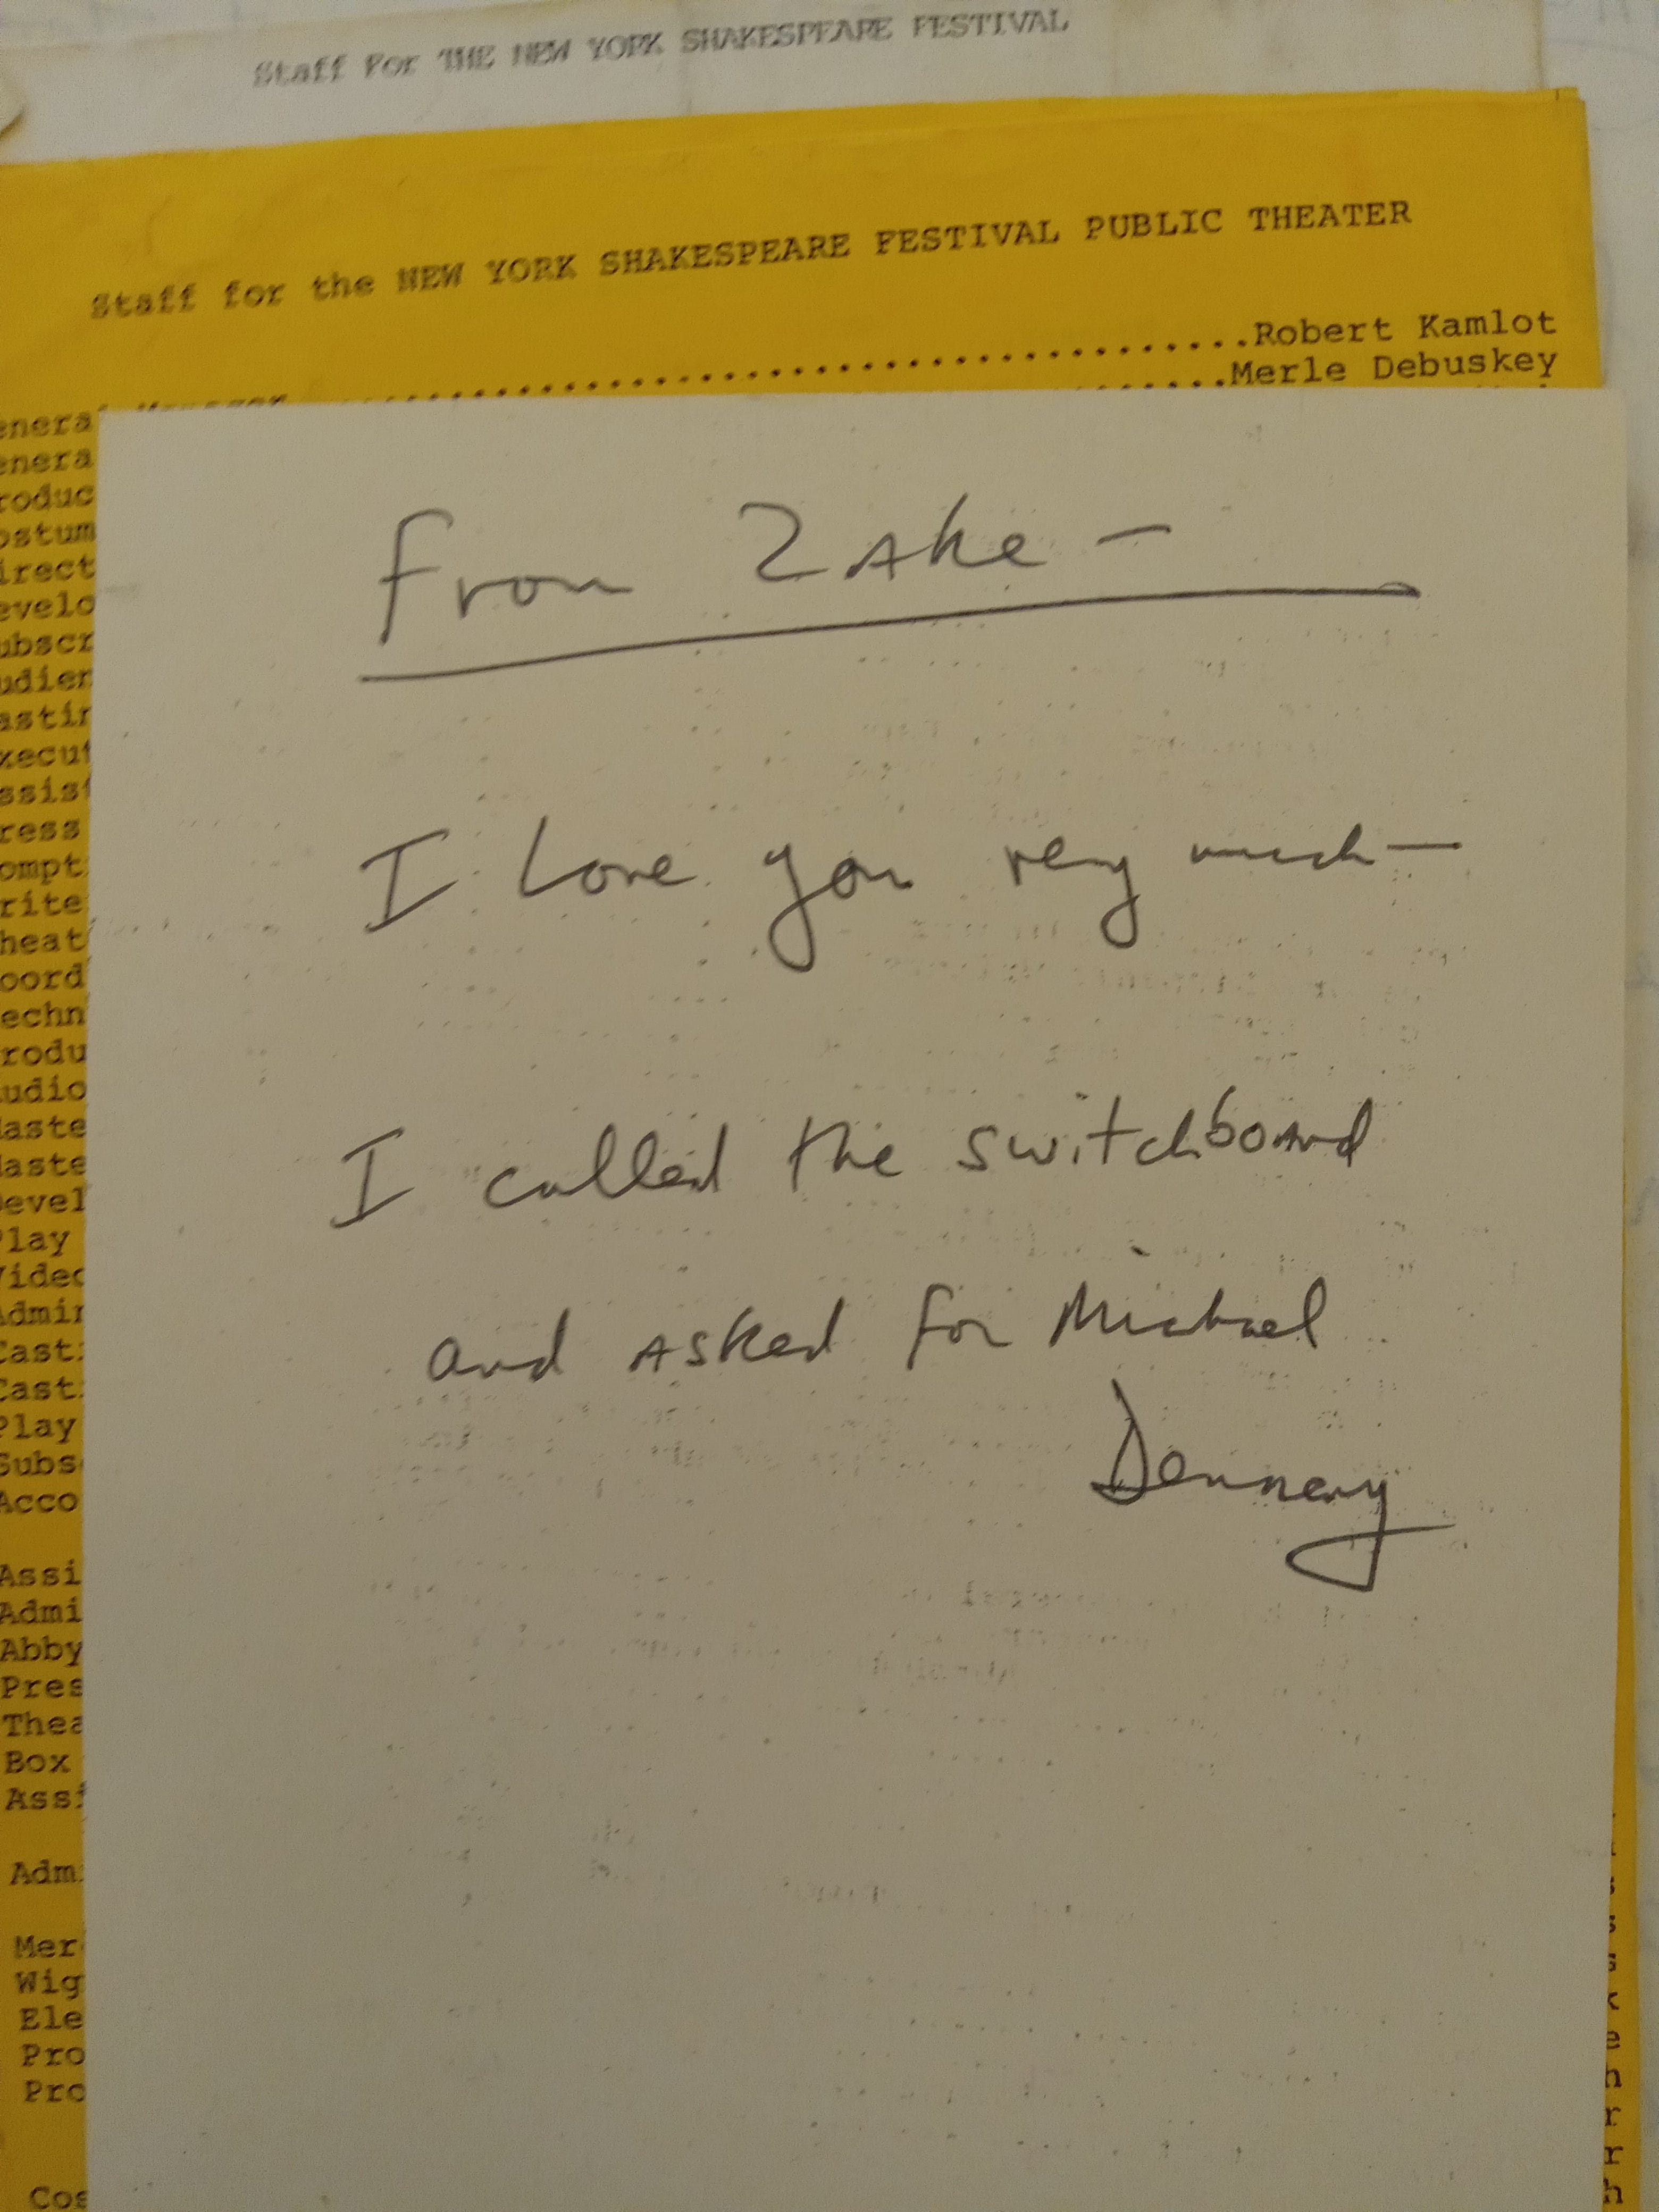 Staff For THE NEW YORK SHAKESPEARE FESTIVAL
Staff for the NEW YORK SHAKESPEARE FESTIVAL PUBLIC THEATER
General Manager..........Robert Kamlot
..........Merle Debuskey
From Zake —
I Love you very much —
I called the switchboard
and asked for Michael
Denneny
enera
enera
roduc
ostum
irect
evelo
ubscr
udien
astin
xecut
ssist
ress
ompt
rite
heat
oord
echn
rodu
udio
aste
aste
evel
Play
Video
Admin
Cast
Cast
Play
Subs
Acco
Assi
Admi
Abby
Pres
Thea
Box
Assi
Adm
Mer
Wig
Ele
Pro
Pro
Cos